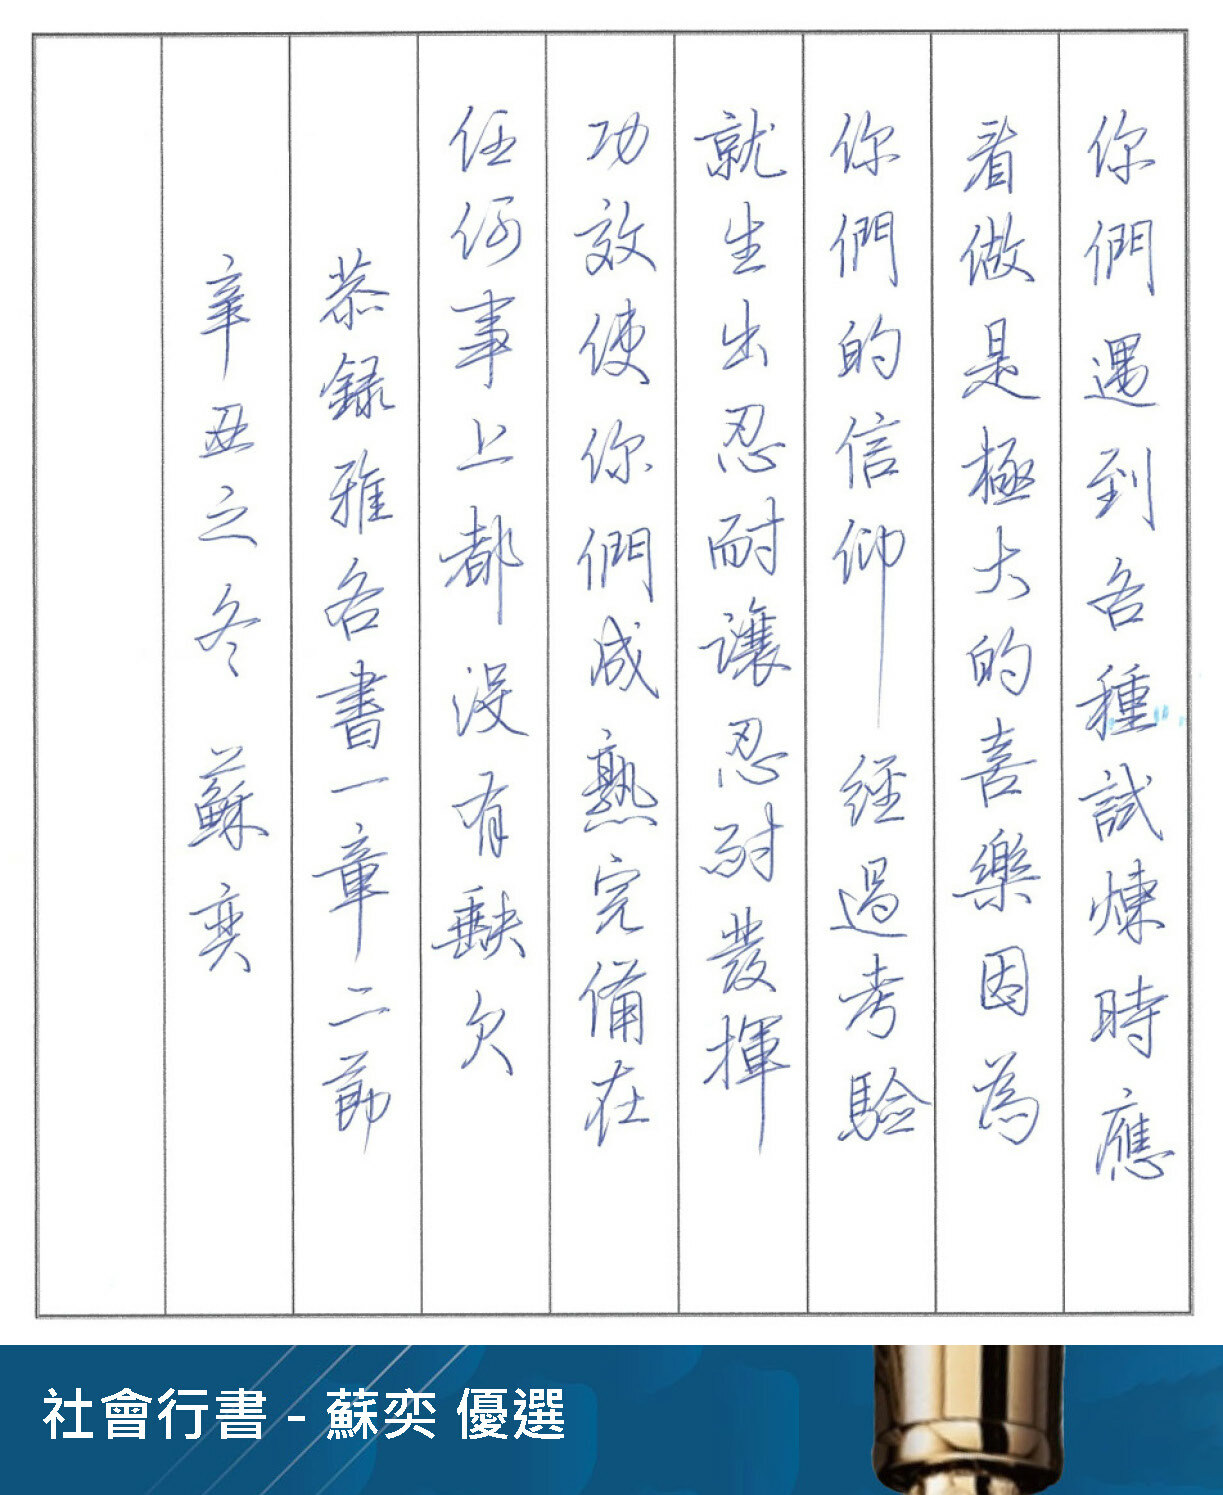 你們遇到各種試煉時應
看做是極大的喜樂因為
你們的信仰經過考驗
就生出忍耐讓忍耐發揮
功效使你們成熟完備在
任何事上都沒有缺欠
恭録雅各書一章二節
辛丑之冬 蘇奕
社會行書 - 蘇奕 優選